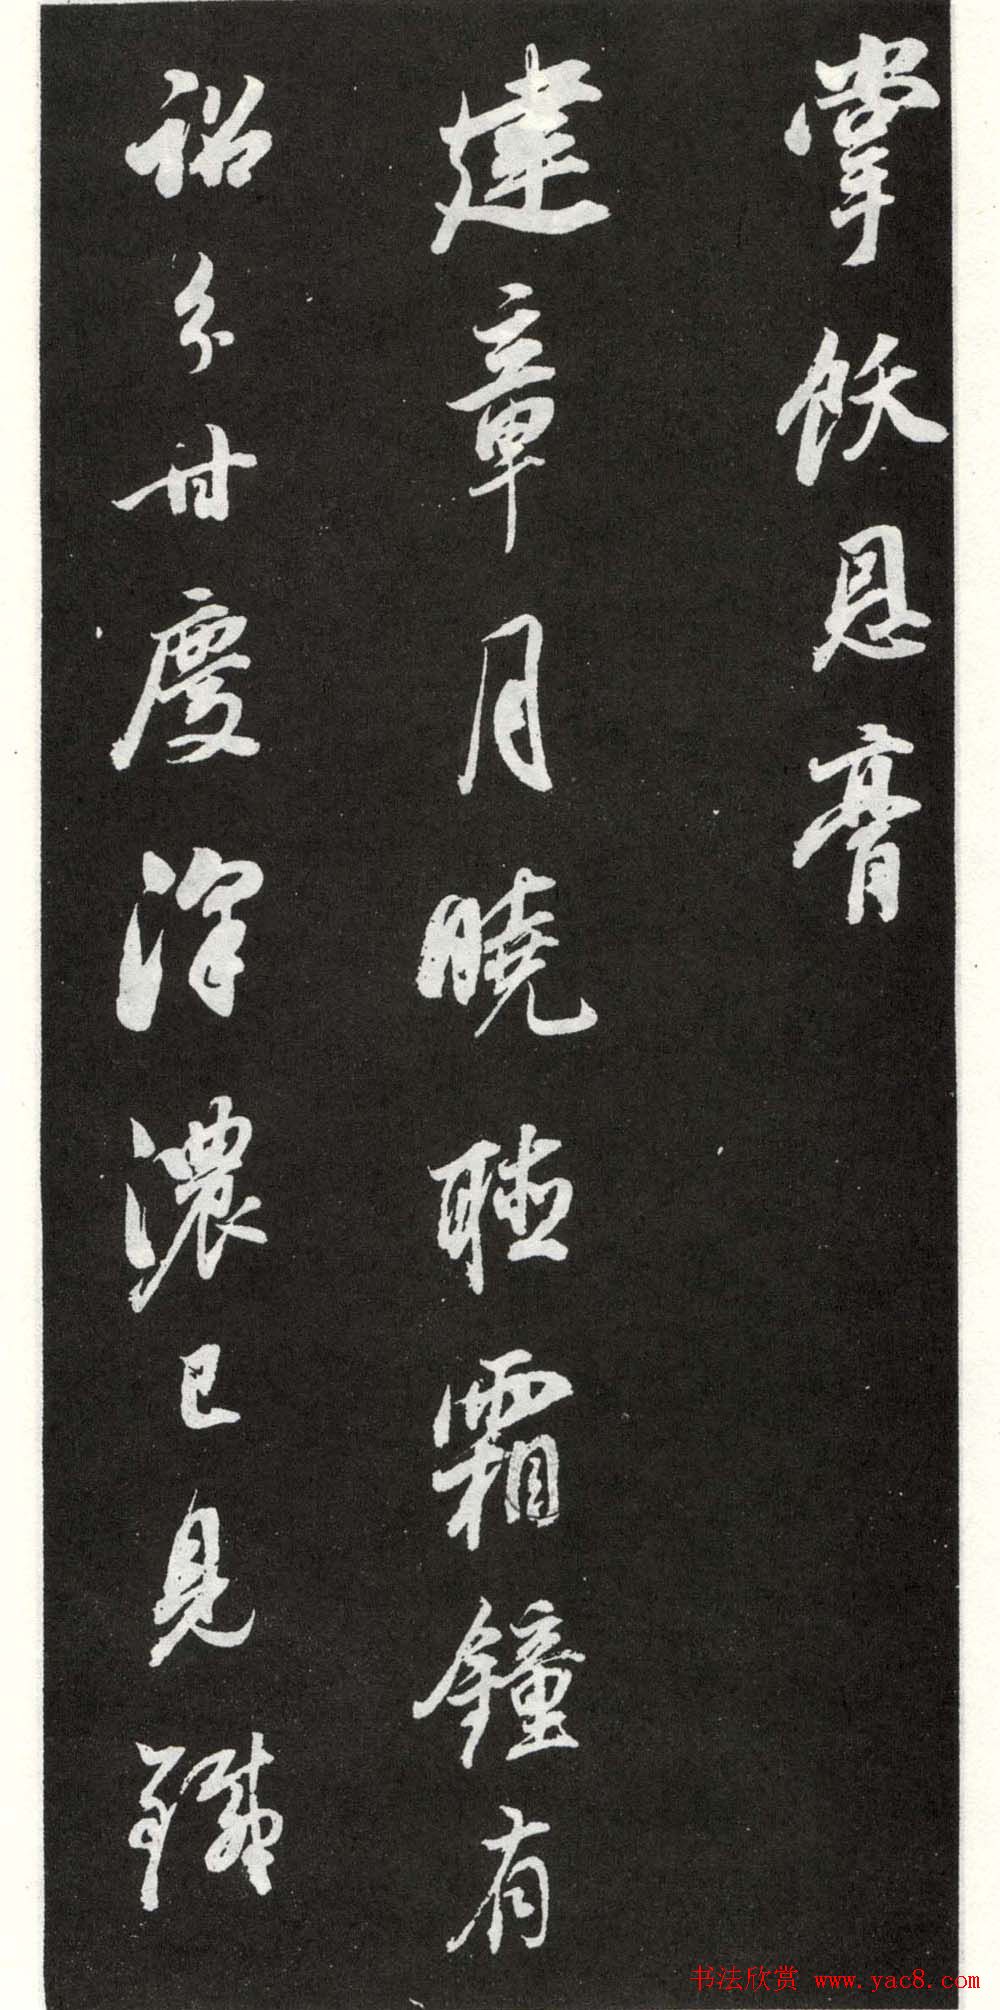 掌飫恩膏
建章月曉聽霜鐘有
詔分甘慶澤濃已見鐵
书法欣赏 www.yac8.com